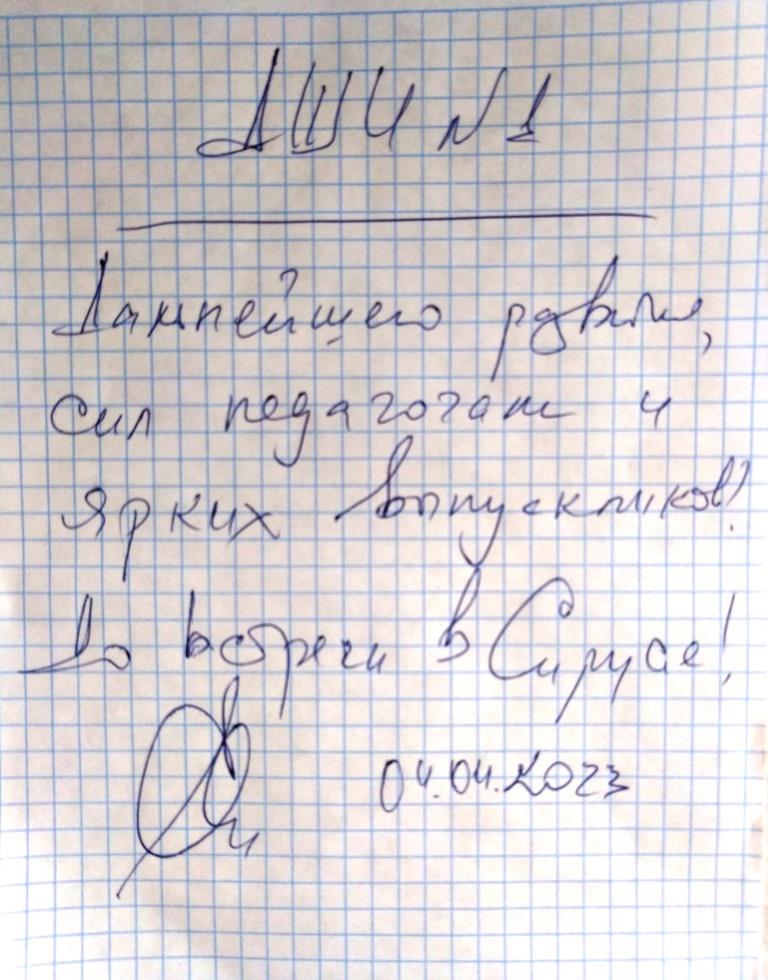 ДШИ №1
Дальнейшего развития,
сил педагогам и
ярких выпускников!
До встречи в Сириусе!
04.04.2023